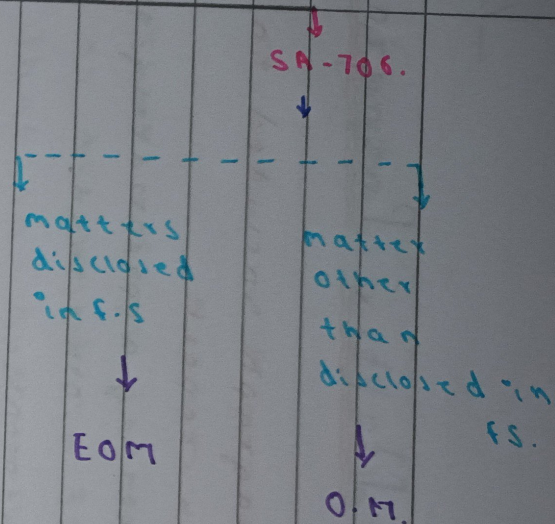 SA-706.
matters
disclosed
in f.s
EOM
matter
other
than
disclosed in
fs.
O.M.